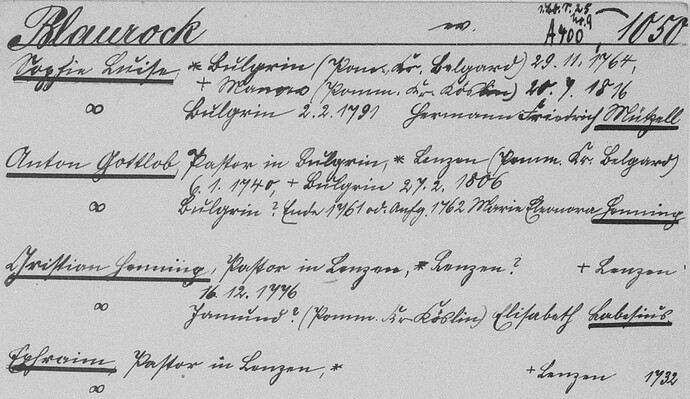 Blaurock ev. A400 1050
Sophie Luise, * Bulgrin (Pom. Kr. Belgard) 29. 11. 1764,
+ (Pomm. Kr. Köslin) 20. 7. 1816
∞ Bulgrin 2. 2. 1791 Hermann Friedrich Mützell
Anton Gottlob, Pastor in Bulgrin, * Lenzen (Pomm. Kr. Belgard)
6. 1. 1740, + Bulgrin 27. 2. 1806
∞ Bulgrin? Ende 1761 od. Anfg. 1762 Marie Eleonora Henning
Christian Henning, Pastor in Lenzen, * Lenzen? + Lenzen
16. 12. 1776
∞ Jamund? (Pomm. Kr. Köslin) Elisabeth Labesius
Ephraim, Pastor in Lenzen, * + Lenzen 1732
∞